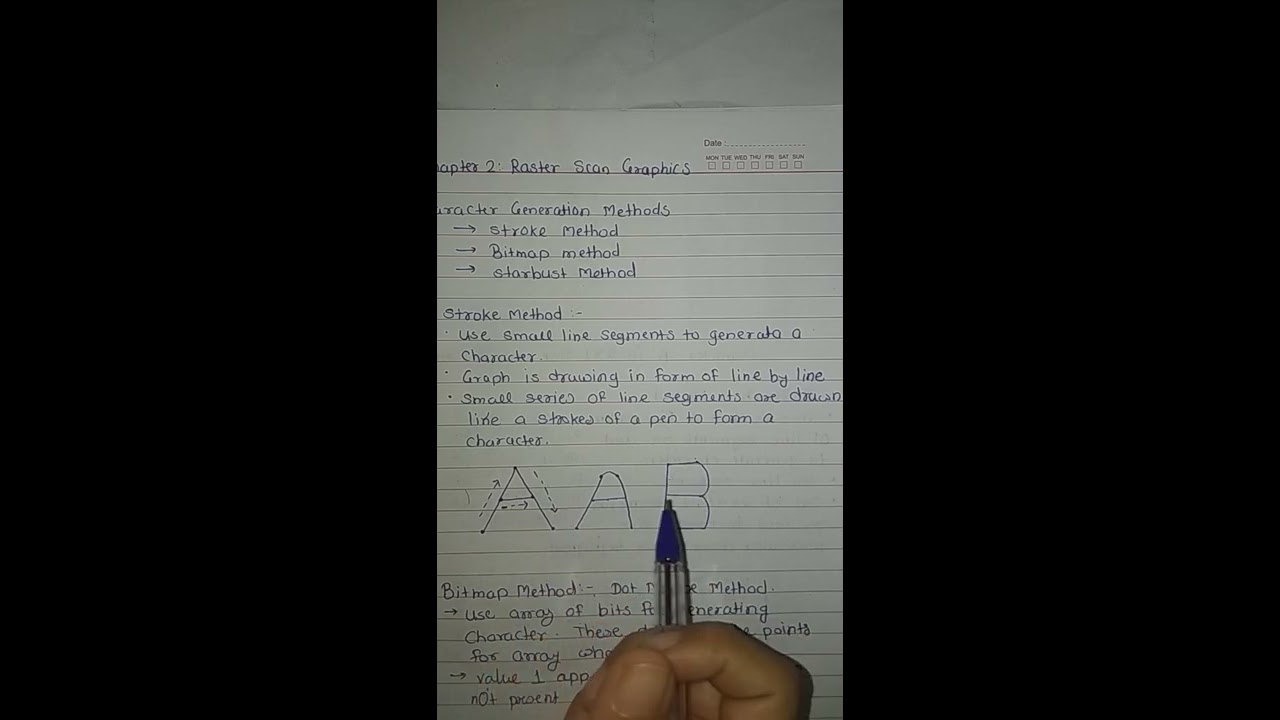 Date :
MON TUE WED THU FRI SAT SUN
apter 2: Raster Scan Graphics
aracter Generation Methods
→ Stroke Method
→ Bitmap method
→ starbust Method
Stroke Method :-
· Use small line segments to generata a
Character.
· Graph is drawing in form of line by line
· Small series of line segments are drawn
like a strokes of a pen to form a
character.
A A B
Bitmap Method :- Dot Method.
→ Use array of bits enerating
Character. These points
for array
→ value 1 app
not present